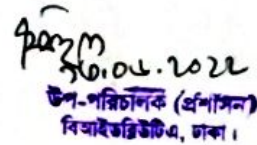 ২০.০৬.২০২২
উপ-পরিচালক (প্রশাসন)
বিআইডব্লিউটিএ, ঢাকা।